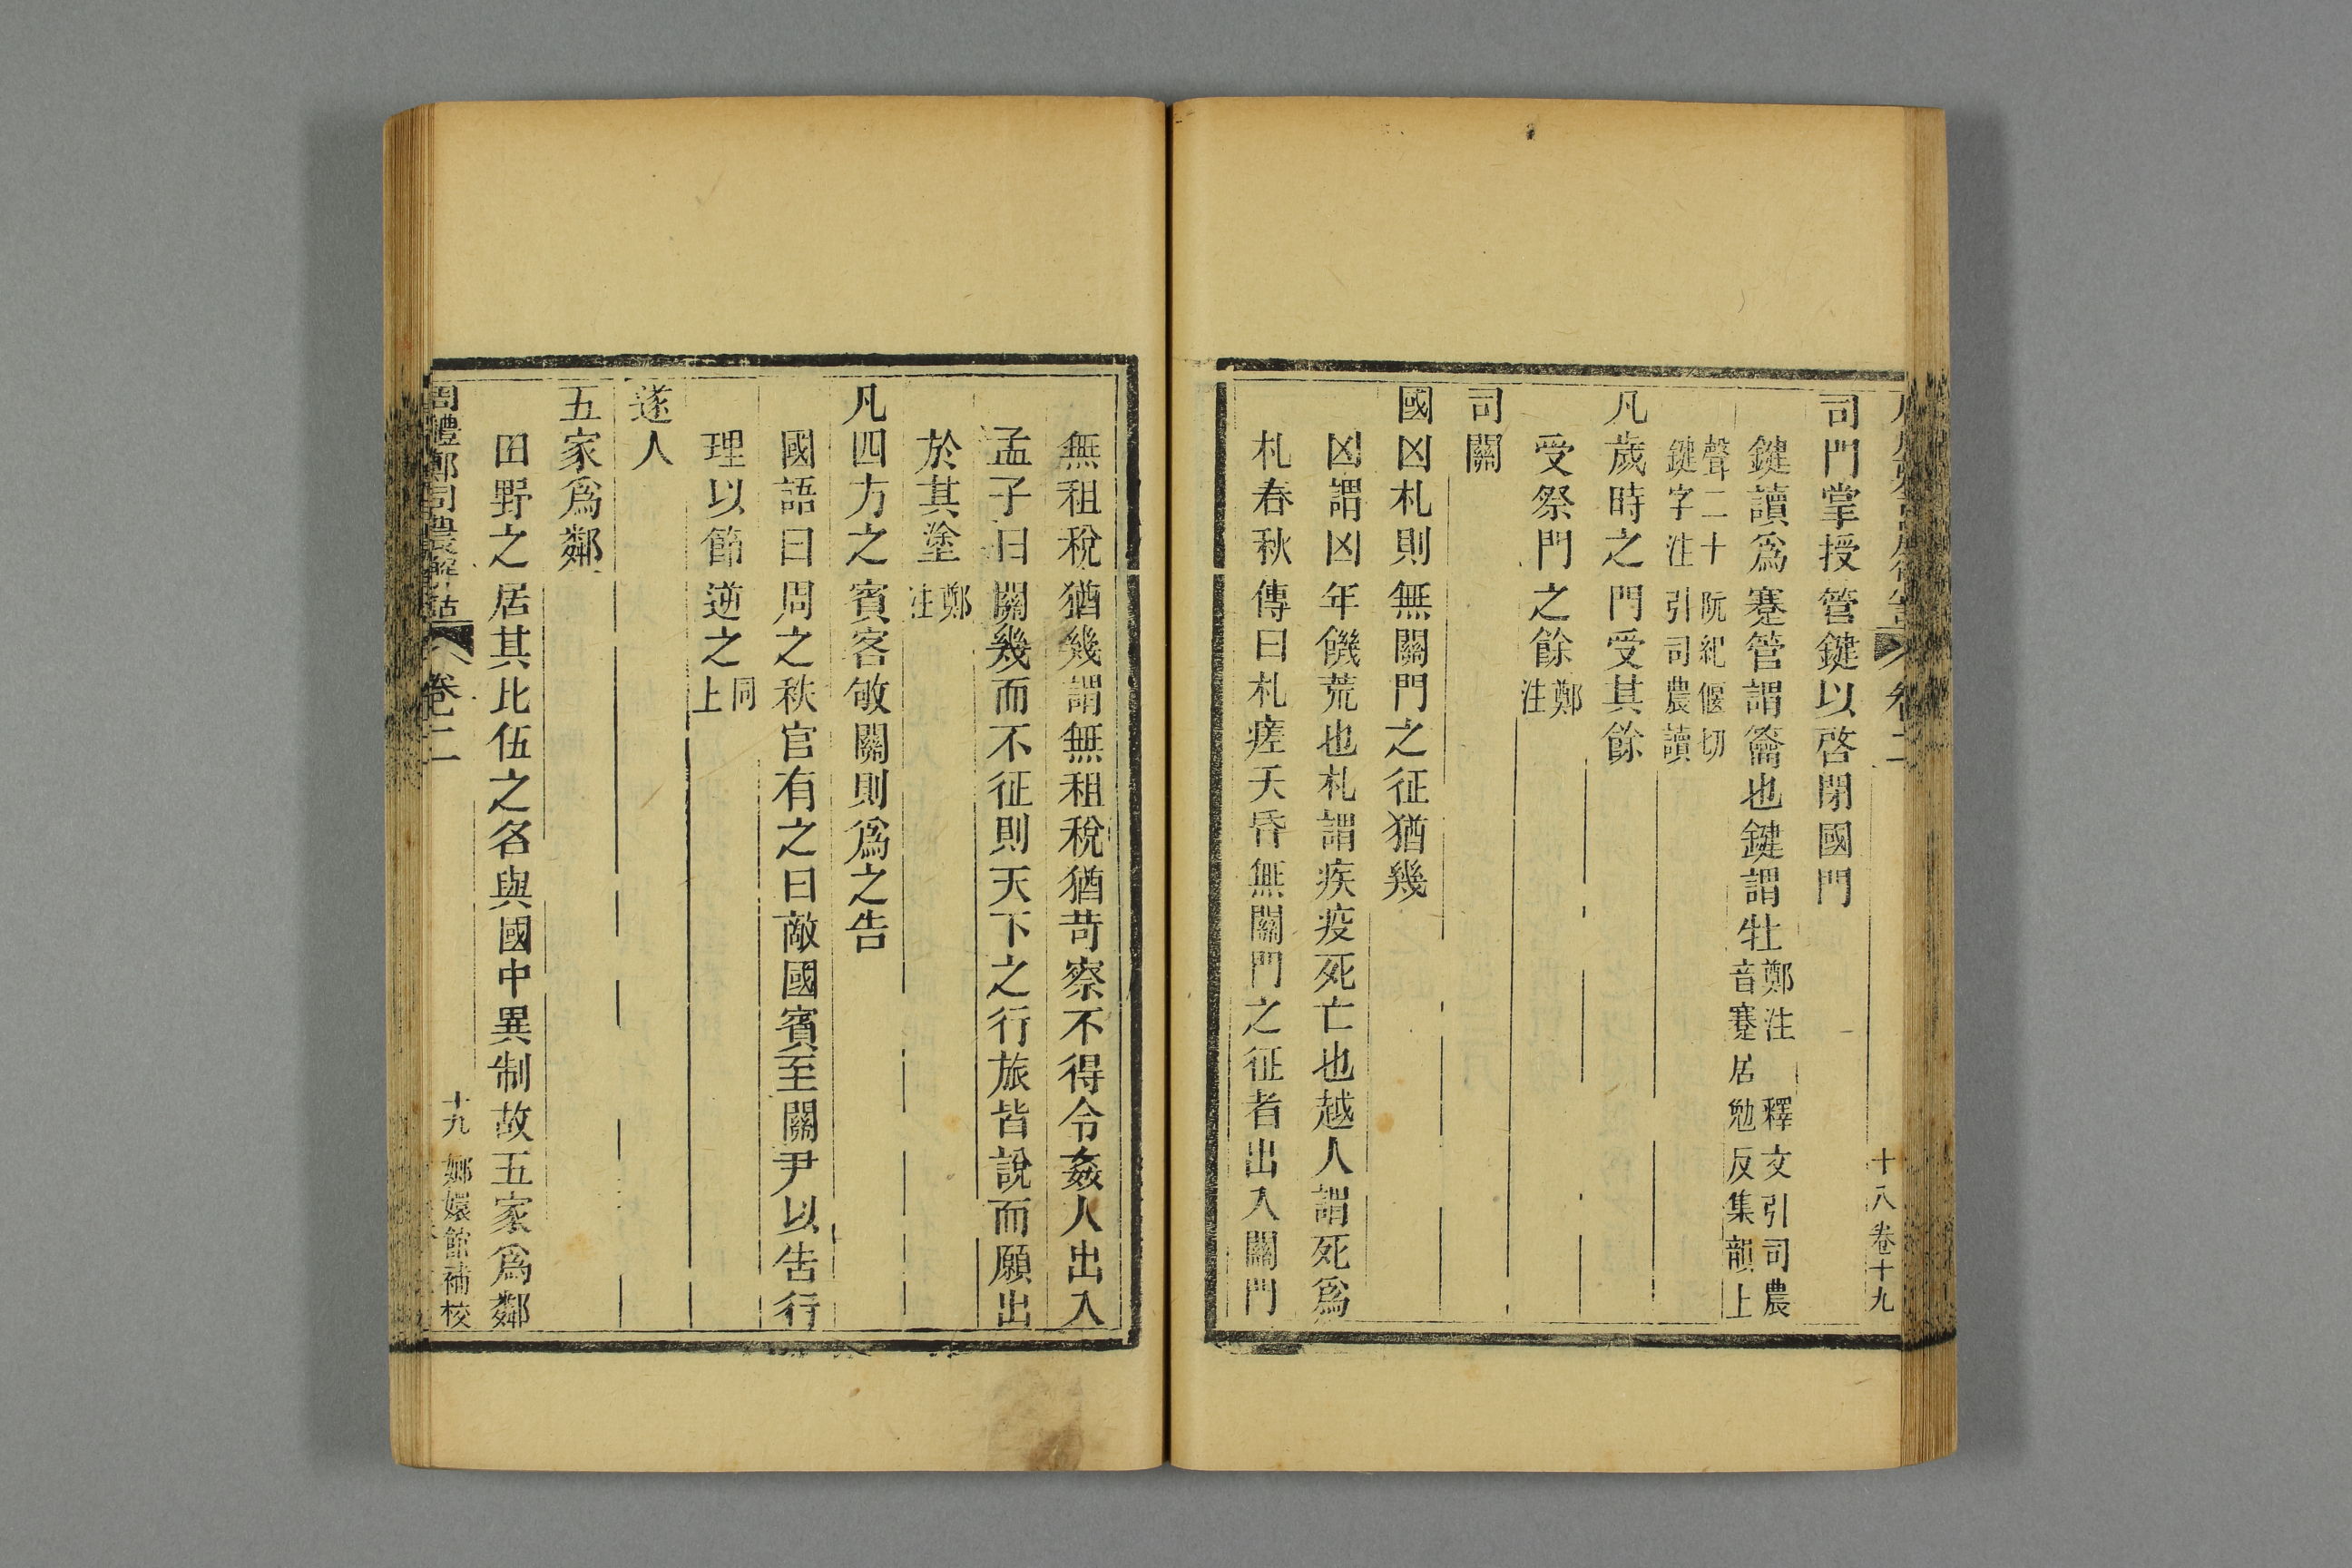 司門掌授管鍵以啓閉國門
鍵讀爲蹇管謂籥也鍵謂牡鄭注 釋文引司農音蹇居勉反集韻上
聲二十阮紀偃切鍵字注引司農讀
凡歲時之門受其餘
受祭門之餘鄭注
司關
國凶札則無關門之征猶幾
凶謂凶年饑荒也札謂疾疫死亡也越人謂死爲
札春秋傳曰札瘥夭昏無關門之征者出入關門
十八卷十九
無租稅猶幾謂無租稅猶苛察不得令姦人出入
孟子曰關幾而不征則天下之行旅皆說而願出
於其塗鄭注
凡四方之賓客敂關則爲之告
國語曰周之秩官有之曰敵國賓至關尹以告行
理以節逆之同上
遂人
五家爲鄰
田野之居其比伍之名與國中異制故五家爲鄰
周禮鄭司農解詁 卷二 十九 嫏嬛館補校